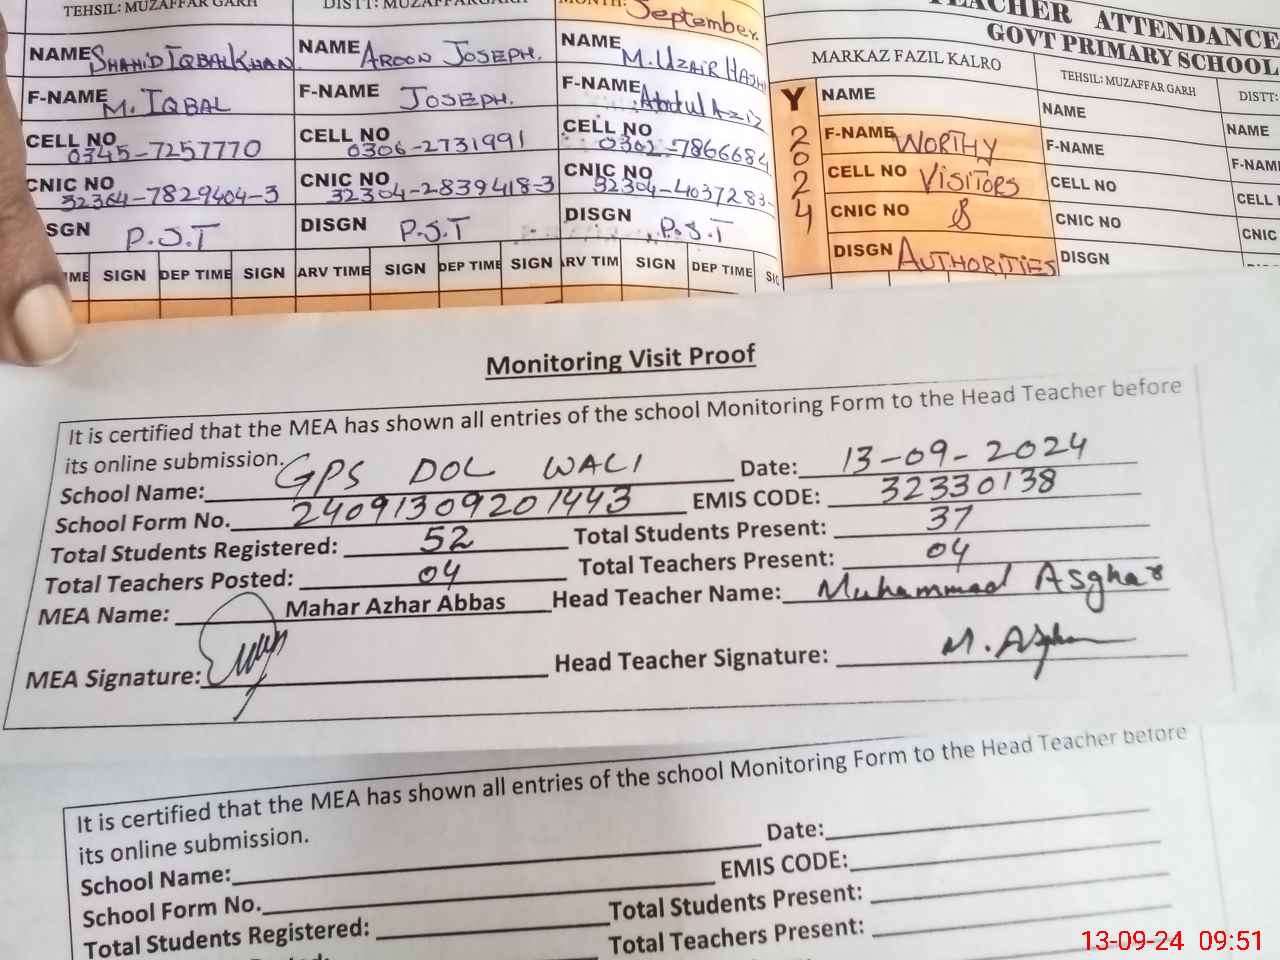 TEHSIL: MUZAFFAR GARH
DISTT: MUZAFFARGARH
MONTH: September.
NAME Shahid Iqbal Khan
NAME Aroon Joseph.
NAME M. Uzair Hashi
F-NAME M. Iqbal
F-NAME Joseph.
F-NAME Abdul Aziz
CELL NO 0345-7257770
CELL NO 0306-2731991
CELL NO 0302-7866684
CNIC NO 32304-7829404-3
CNIC NO 32304-2839418-3
CNIC NO 32304-4037283-
SGN P.S.T
DISGN P.S.T
DISGN P.S.T
ME SIGN DEP TIME SIGN ARV TIME SIGN DEP TIME SIGN ARV TIM SIGN DEP TIME SIG
TEACHER ATTENDANCE
GOVT PRIMARY SCHOOL
MARKAZ FAZIL KALRO
TEHSIL: MUZAFFAR GARH
DISTT:
Y
2
0
2
4
NAME
F-NAME WORTHY
CELL NO VISITORS
CNIC NO &
DISGN AUTHORITIES
NAME
F-NAME
CELL NO
CNIC NO
DISGN
NAME
F-NAM
CELL
CNIC
Monitoring Visit Proof
It is certified that the MEA has shown all entries of the school Monitoring Form to the Head Teacher before
its online submission.
School Name: GPS DOL WALI Date: 13-09-2024
School Form No. 24091309201443 EMIS CODE: 32330138
Total Students Registered: 52 Total Students Present: 37
Total Teachers Posted: 04 Total Teachers Present: 04
MEA Name: Mahar Azhar Abbas Head Teacher Name: Muhammad Asghar
MEA Signature: Head Teacher Signature: M. Asghar
It is certified that the MEA has shown all entries of the school Monitoring Form to the Head Teacher before
its online submission.
School Name: Date:
School Form No. EMIS CODE:
Total Students Registered: Total Students Present:
Total Teachers Present:
13-09-24 09:51